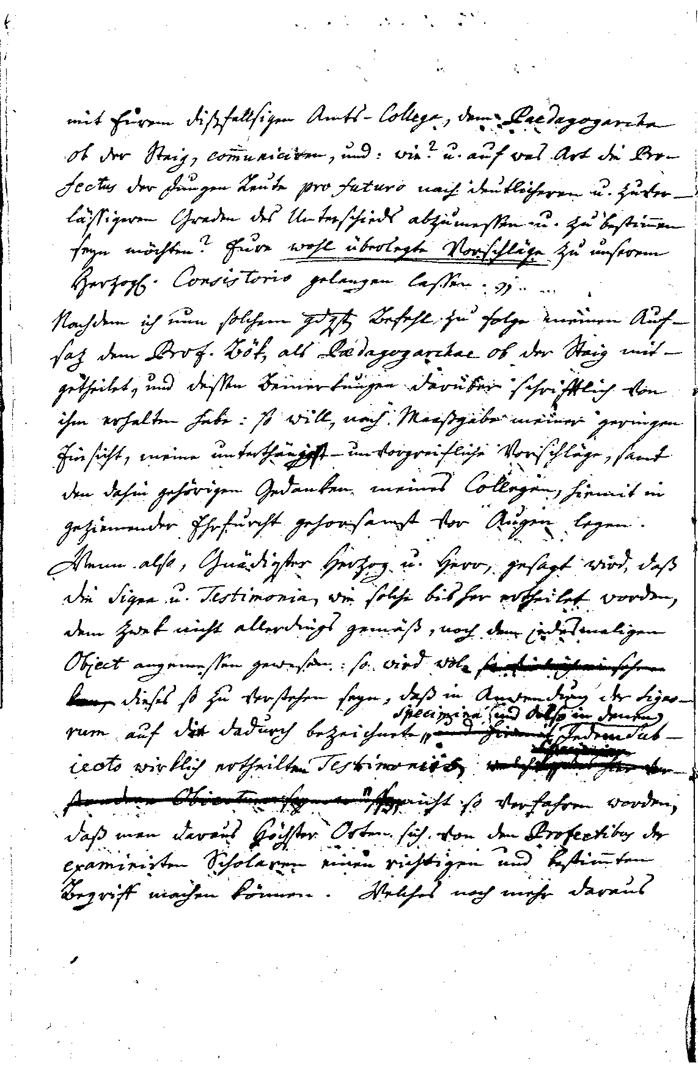 mit Eurem dißfallsigen Amts-Collega, dem Paedagogarcha
ob der Staig, communiciren, und: wie? u. auf was Art die Pro-
fectus der Jungen Leute pro futuro nach deutlicheren u. zuver-
lässigeren Graden des Unterschieds abzumessen u. zu bestimmen
seyn möchten? Eure wohl überlegte Vorschläge zu unserem
Herzogl. Consistorio gelangen lassen.
Nachdem ich nun solchem gdgst Befehl zu folge meinen Auf-
saz dem Prof. Bök, als Paedagogarchae ob der Staig mit-
getheilet, und dessen Bemerkungen darüber schrifftlich von
ihm erhalten habe: so will, nach Maasgabe meiner geringen
Einsicht, meine unterthänigst-unvorgreifliche Vorschläge, samt
den dahin gehörigen Gedanken meines Collegen, hiemit in
geziemender Ehrfurcht gehorsamst vor Augen legen.
Wenn also, Gnädigster Herzog u. Herr, gesagt wird, daß
die Signa u. Testimonia, wie solche bisher ertheilet worden,
dem Zwek nicht allerdings gemäß, noch dem jedesmaligen
Object angemessen gewesen: so wird wol
dieses so zu verstehen seyn, daß in Anwendung der Signo-
Specimina, und also in denen
rum auf die dadurch bezeichnete jedem Sub-
jecto wirklich ertheilten Testimoniis,
nicht so verfahren worden,
daß man daraus Höchster Orten sich von den Profectibus der
examinirten Scholaren einen richtigen und bestimmten
Begriff machen können. Welches noch mehr daraus